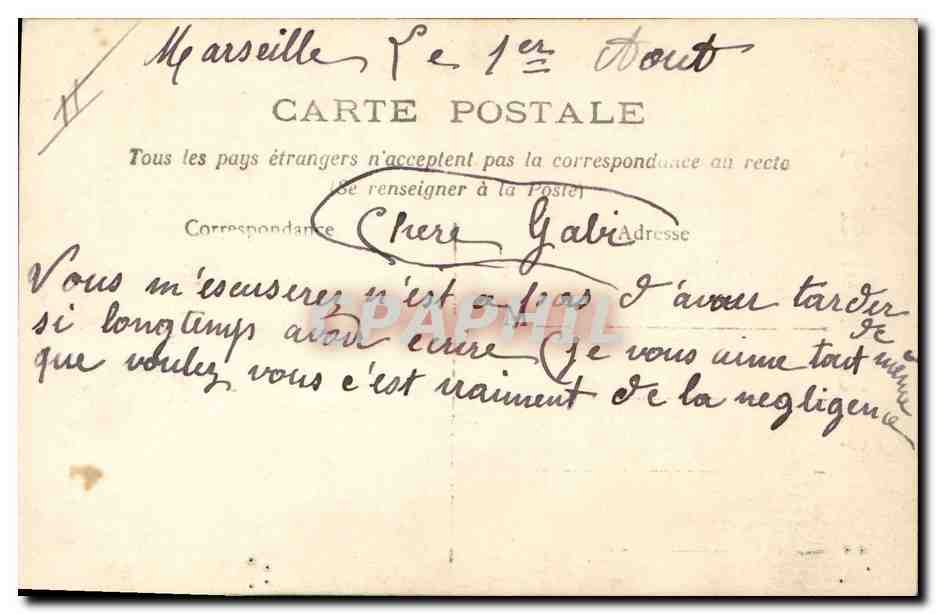 Marseille Le 1er Aout
CARTE POSTALE
Tous les pays étrangers n'acceptent pas la correspondance au recto
(Se renseigner à la Poste)
Correspondance Adresse
Chere Gabi
Vous m'escuserez n'est a pas d'avoir tarder de
si longtemps avoir écrire (je vous aime tout même
que voulez vous c'est vraiment de la negligence
CPAPHIL